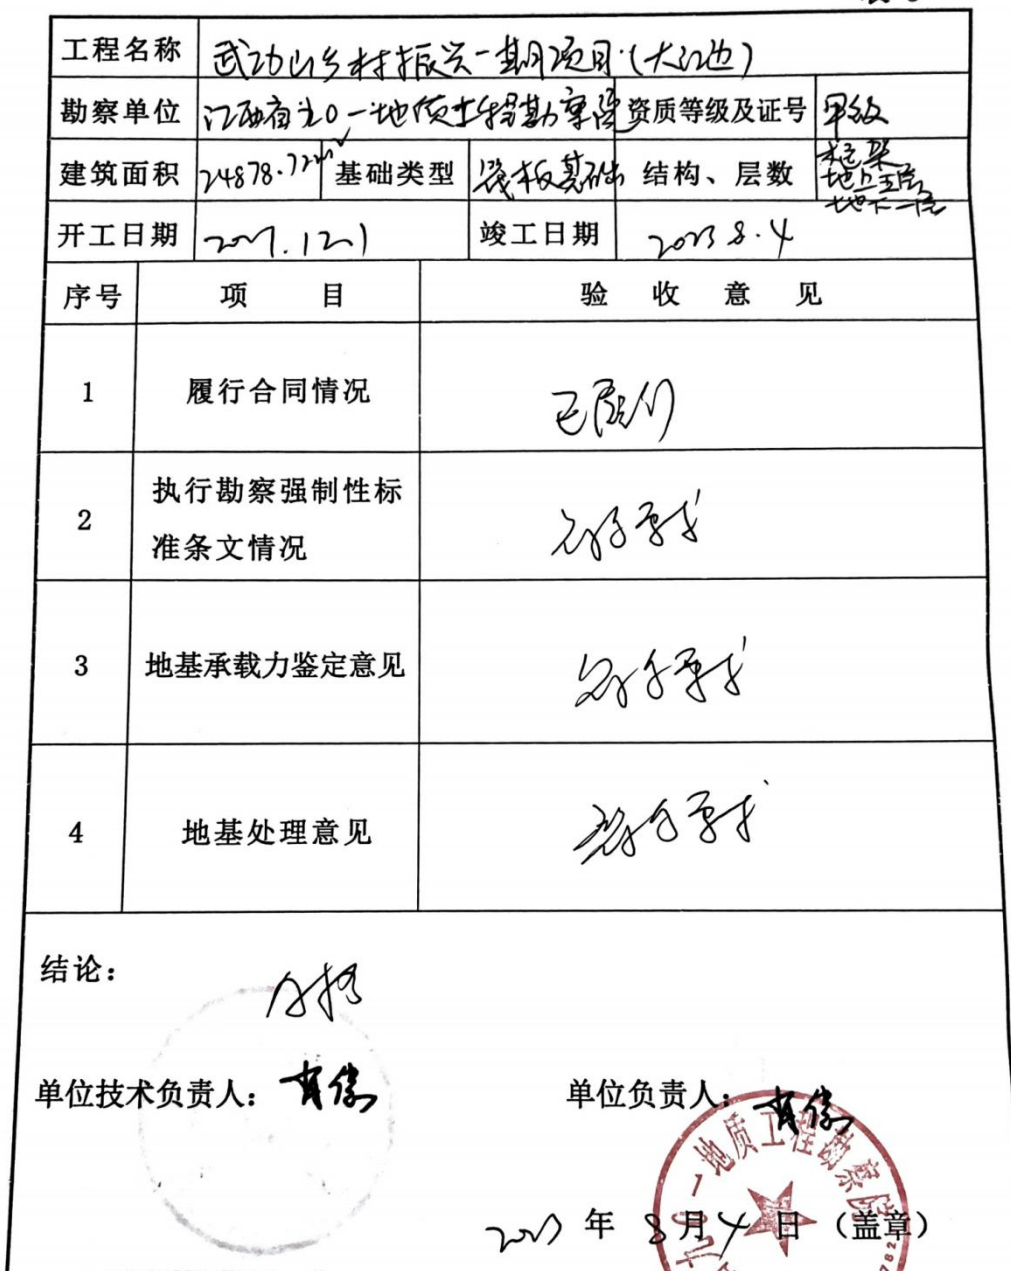 工程名称 武功山乡村振兴一期项目(大江边)
勘察单位 江西省九0一地质工程勘察院 资质等级及证号 甲级
建筑面积 24878.72m² 基础类型 筏板基础 结构、层数 框架
地上五层
地下一层
开工日期 竣工日期 2023 8.4
序号 项目 验收意见
1 履行合同情况 已履行
2 执行勘察强制性标准条文情况 符合要求
3 地基承载力鉴定意见 符合要求
4 地基处理意见 符合要求
结论:
合格
单位技术负责人: 单位负责人:
九0一地质工程勘察院
2023 年 8 月 4 日 (盖章)